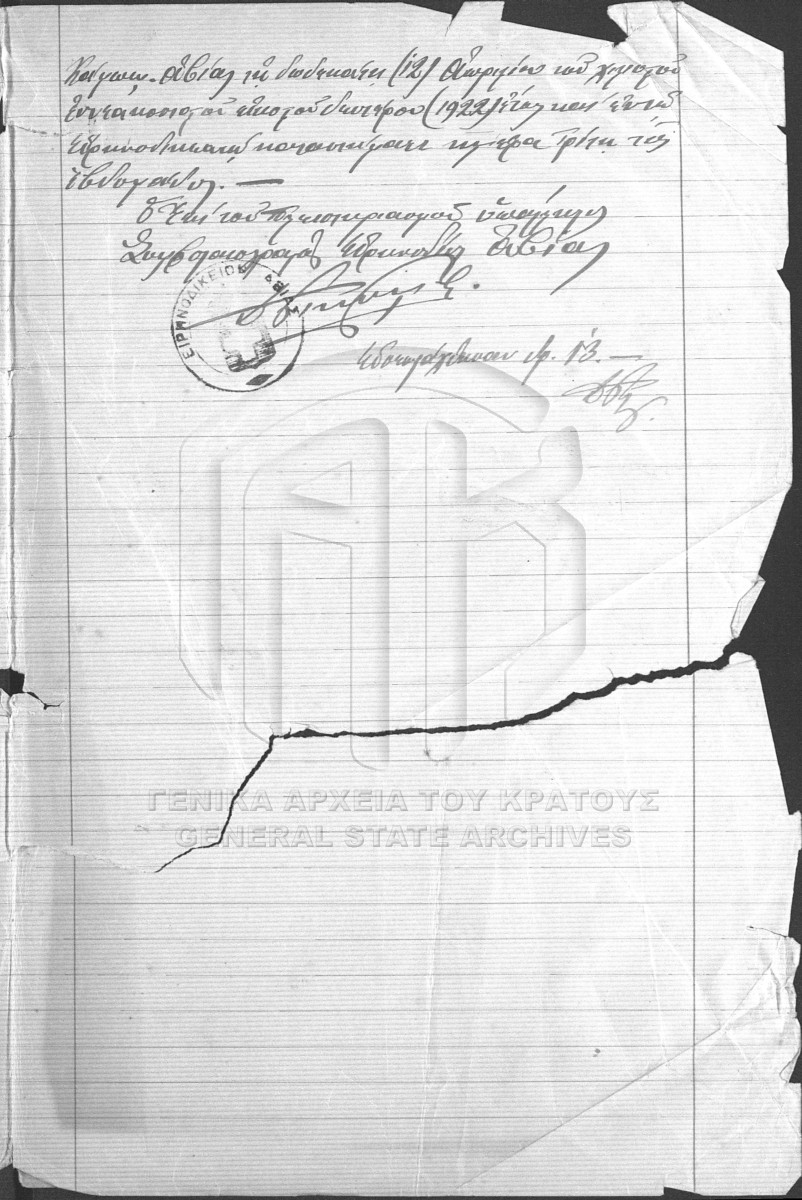 Κάμπων Ἀβίας τῇ δωδεκάτῃ (12) Ἀπριλίου τοῦ χιλιοστοῦ
ἐννεακοσιοστοῦ εἰκοστοῦ δευτέρου (1922) ἔτους καὶ ἐν τῷ
Εἰρηνοδικειακῷ καταστήματι ἡμέρᾳ Τρίτῃ τῆς
ἑβδομάδος. —
Ὁ ἐπὶ τοῦ πλειστηριασμοῦ ὑπάλληλος
Συμβολαιογράφος Εἰρηνοδίκης Ἀβίας
ΕΙΡΗΝΟΔΙΚΕΙΟΝ ΑΒΙΑΣ
13. —
ΓΕΝΙΚΑ ΑΡΧΕΙΑ ΤΟΥ ΚΡΑΤΟΥΣ
GENERAL STATE ARCHIVES